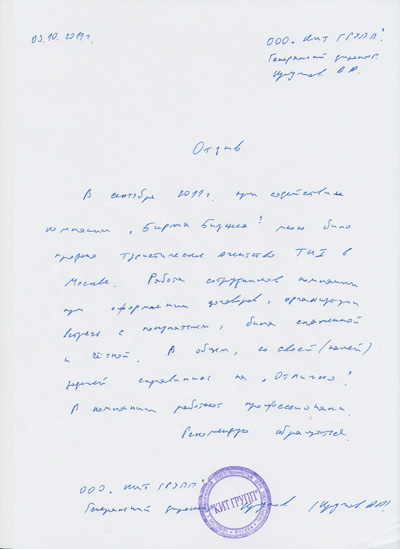 03.10.2011г.
ООО "КИТ ГРУПП"
Генеральный
Отзыв
В сентябре 2011г. при содействии
компании "Биржа Бизнеса" мною было
продано Туристическое агентство ТИ1 в
Москве. Работа сотрудников компании
при оформлении договоров, организации
встреч с покупателем, была слаженной
и чёткой. В общем, со своей (нашей)
задачей справились на "Отлично"!
В компании работают профессионалы.
Рекомендую обращаться.
ООО "КИТ ГРУПП"
Генеральный
"КИТ ГРУПП"